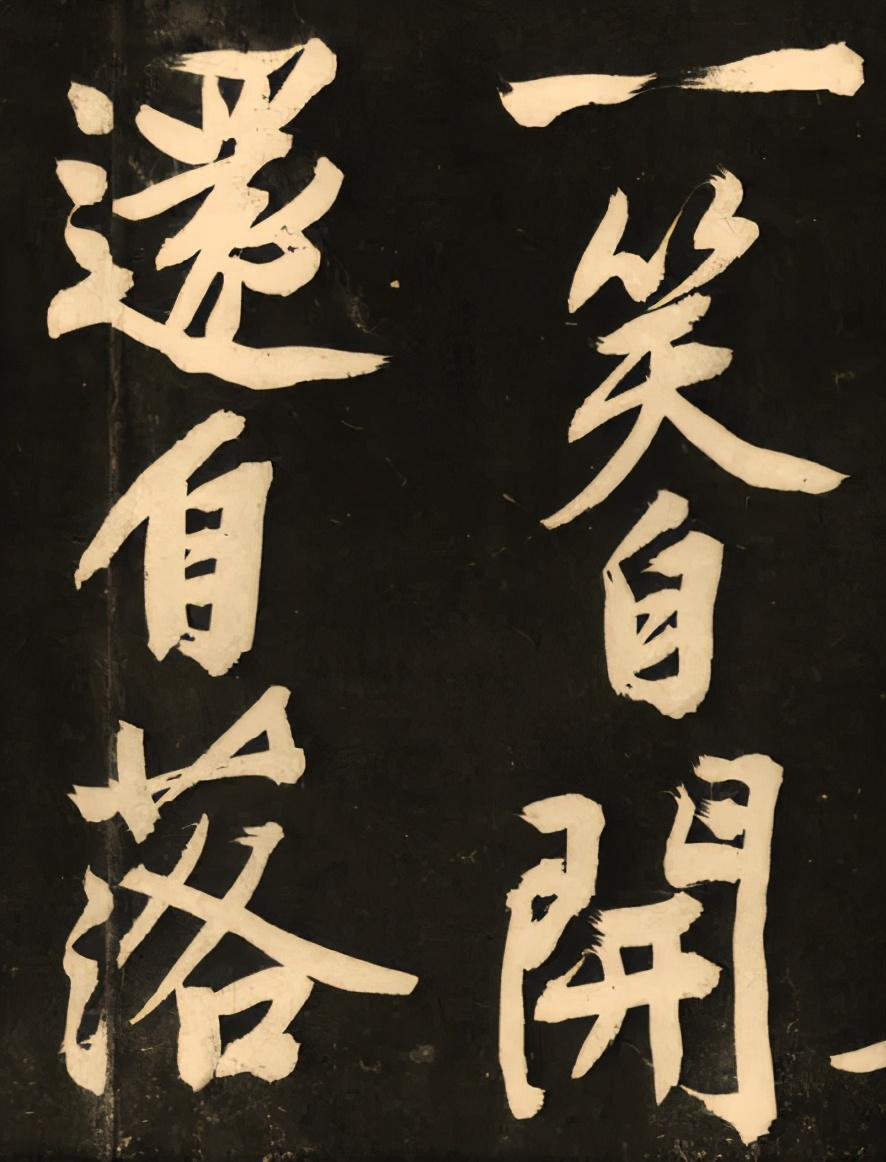 一笑自開
還自落